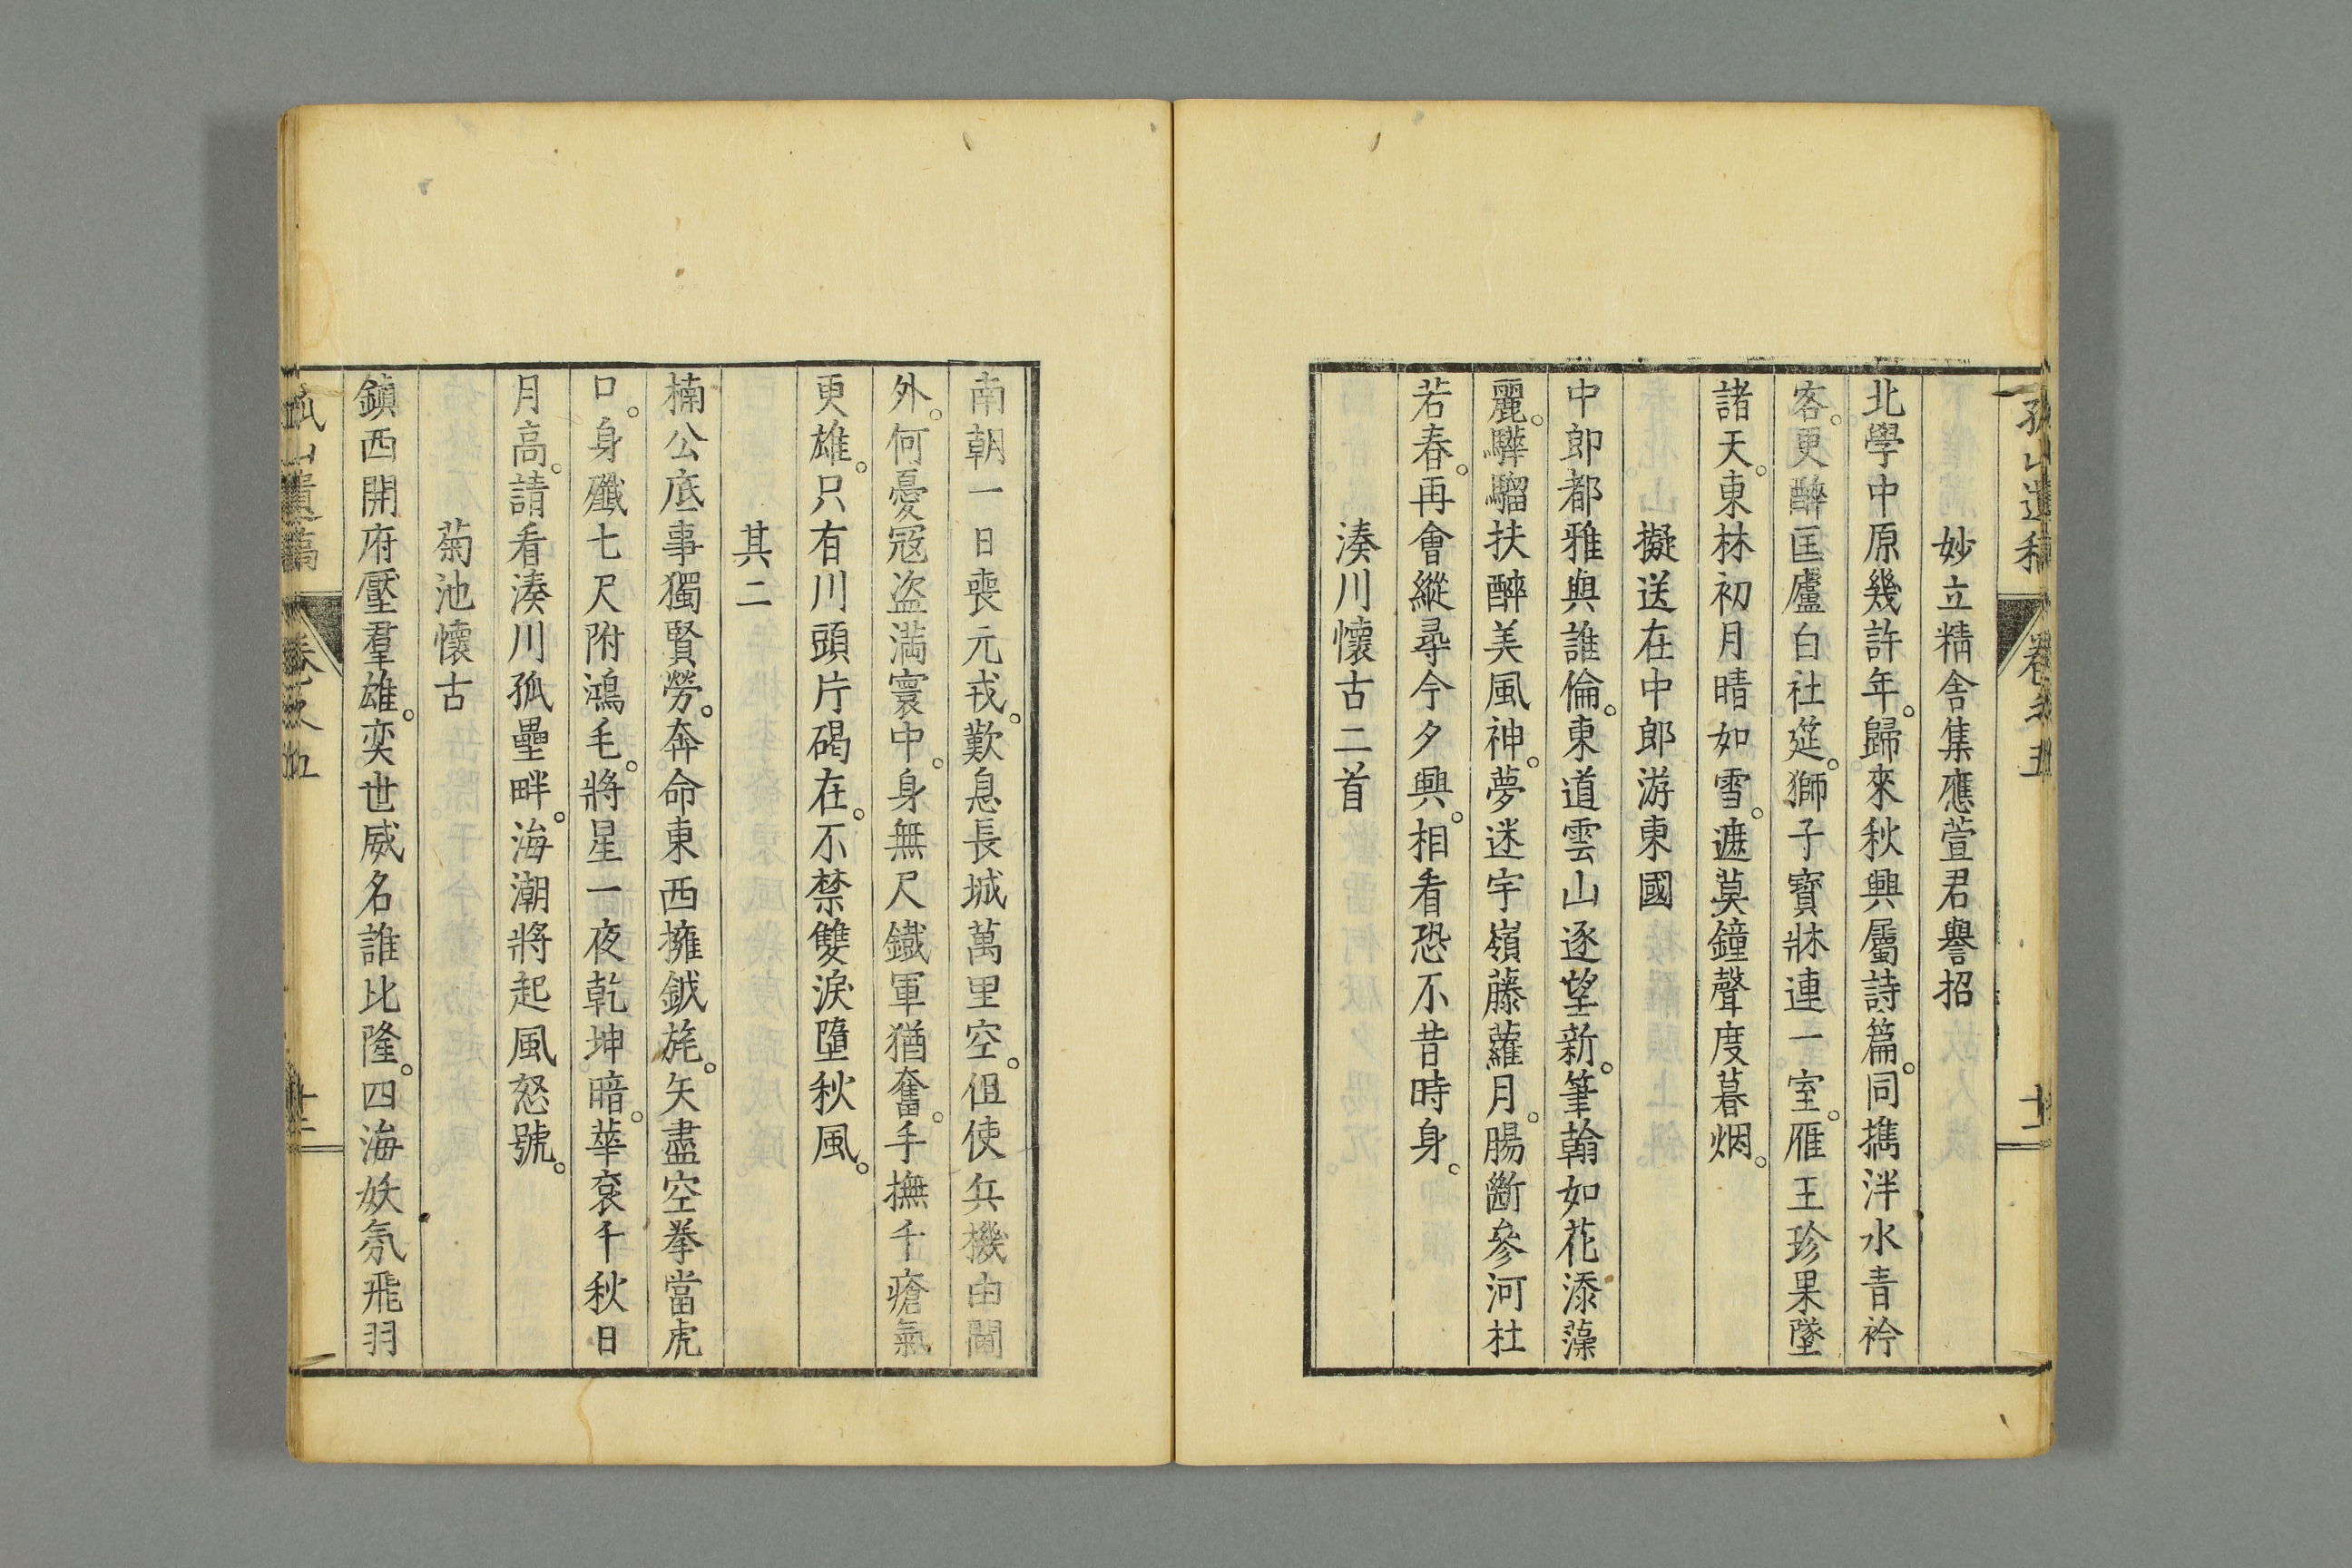 妙立精舍集應萱君譽招
北學中原幾許年。歸來秋興屬詩篇。同擕泮水青衿
客。更醉匡廬白社筵。獅子寶牀連一室。雁王珍果墜
諸天。東林初月晴如雪。遮莫鐘聲度暮烟。
擬送在中郎游東國
中郎都雅與誰倫。東道雲山逐望新。筆翰如花添藻
麗。驊騮扶醉美風神。夢迷宇嶺藤蘿月。腸斷參河杜
若春。再會縱尋今夕興。相看恐不昔時身。
湊川懷古二首
南朝一日喪元戎。歎息長城萬里空。但使兵機由閫
外。何憂冦盗満寰中。身無尺鐵軍猶奮。手撫千瘡氣
更雄。只有川頭片碣在。不禁雙淚墮秋風。
其二
楠公底事獨賢勞。奔命東西擁鉞旄。矢盡空拳當虎
口。身殲七尺附鴻毛。將星一夜乾坤暗。華袞千秋日
月高。請看湊川孤壘畔。海潮將起風怒號。
菊池懷古
鎮西開府壓羣雄。奕世威名誰比隆。四海妖氛飛羽